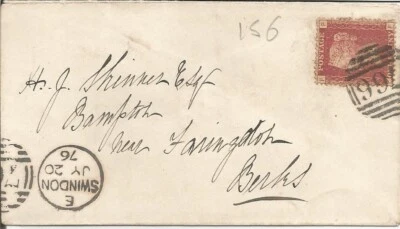 156
H. J. Skinner Esqr
Bampton
near Faringdon
Berks
E
SWINDON
JY 20
76
POSTAGE